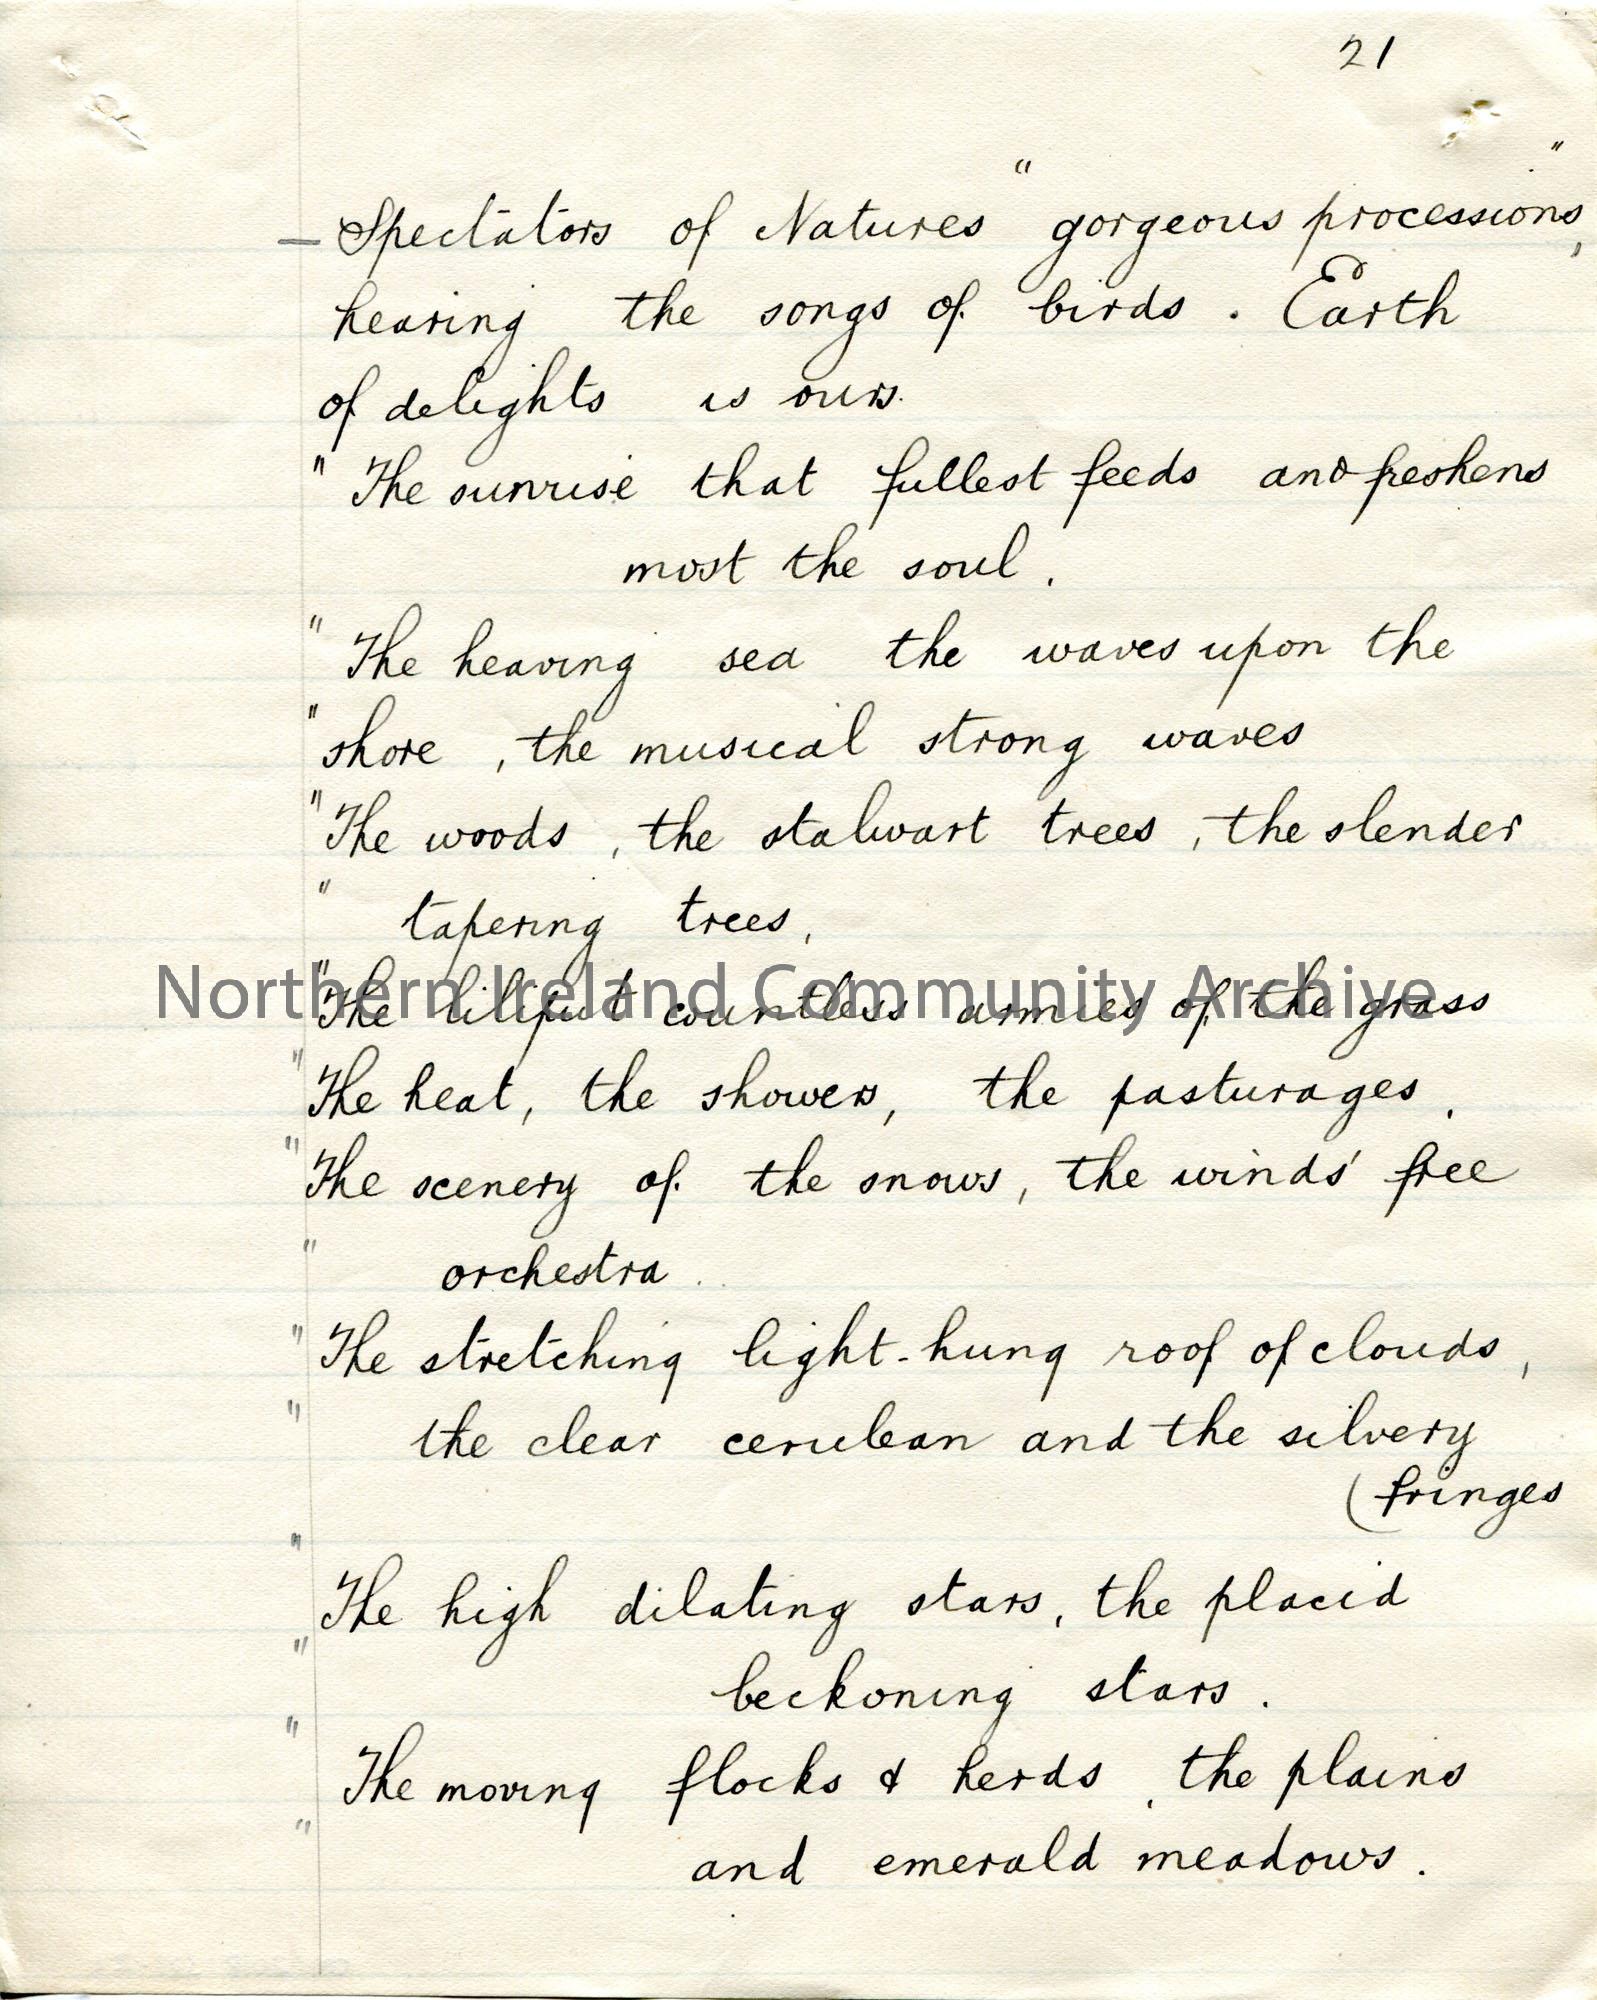 21
— Spectators of Natures "gorgeous processions",
hearing the songs of birds. Earth
of delights is ours.
" The sunrise that fullest feeds and freshens
most the soul.
" The heaving sea the waves upon the
" shore, the musical strong waves
" The woods, the stalwart trees, the slender
" tapering trees,
" The liliput countless armies of the grass
Northern Ireland Community Archive
" The heat, the showers, the pasturages.
" The scenery of the snows, the winds' free
" orchestra.
" The stretching light-hung roof of clouds,
" the clear cerulean and the silvery
(fringes
"
The high dilating stars, the placid
" beckoning stars.
"
The moving flocks & herds, the plains
" and emerald meadows.